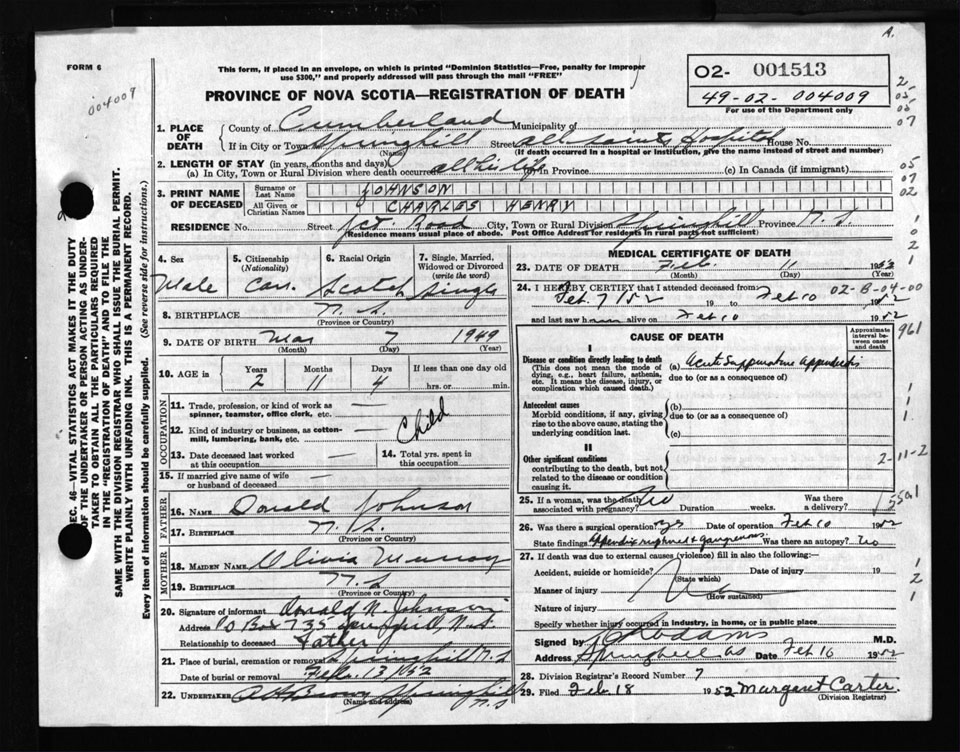 A.
FORM 6
004009
This form, if placed in an envelope, on which is printed "Dominion Statistics—Free, penalty for improper
use $300," and properly addressed will pass through the mail "FREE"
PROVINCE OF NOVA SCOTIA—REGISTRATION OF DEATH
02- 001513
49-02- 004009
For use of the Department only
1. PLACE OF DEATH
County of Cumberland Municipality of
If in City or Town Springhill Street All Saints Hospital House No.
(Name) (If death occurred in a hospital or institution, give the name instead of street and number)
2. LENGTH OF STAY (in years, months and days)
(a) In City, Town or Rural Division where death occurred all his life (b) In Province (c) In Canada (if immigrant)
3. PRINT NAME OF DECEASED
Surname or Last Name JOHNSON
All Given or Christian Names CHARLES HENRY
RESIDENCE No. Street Jct. Road City, Town or Rural Division Springhill Province N.S.
(Residence means usual place of abode. Post Office Address for residents in rural parts not sufficient)
SEC. 46—VITAL STATISTICS ACT MAKES IT THE DUTY
OF THE UNDERTAKER OR PERSON ACTING AS UNDER-
TAKER TO OBTAIN ALL THE PARTICULARS REQUIRED
IN THE "REGISTRATION OF DEATH" AND TO FILE THE
SAME WITH THE DIVISION REGISTRAR WHO SHALL ISSUE THE BURIAL PERMIT.
WRITE PLAINLY WITH UNFADING INK. THIS IS A PERMANENT RECORD.
Every item of information should be carefully supplied. (See reverse side for instructions.)
4. Sex Male
5. Citizenship (Nationality) Can.
6. Racial Origin Scotch
7. Single, Married, Widowed or Divorced (write the word) Single
8. BIRTHPLACE N.S.
(Province or Country)
9. DATE OF BIRTH Mar 7 1949
(Month) (Day) (Year)
10. AGE in Years 2 Months 11 Days 4 If less than one day old
hrs. or min.
OCCUPATION
11. Trade, profession, or kind of work as
spinner, teamster, office clerk, etc. —
12. Kind of industry or business, as cotton-
mill, lumbering, bank, etc. —
Child
13. Date deceased last worked
at this occupation —
14. Total yrs. spent in
this occupation
15. If married give name of wife
or husband of deceased —
FATHER
16. Name Donald Johnson
17. Birthplace N.S.
(Province or Country)
MOTHER
18. MAIDEN NAME Olivia Murray
19. BIRTHPLACE N.S
(Province or Country)
20. Signature of informant Donald N. Johnson
Address P O Box 735 Springhill, N.S.
Relationship to deceased Father
21. Place of burial, cremation or removal Springhill N.S
Date of burial or removal Feb. 13 1952
22. UNDERTAKER Brown Springhill
(Name and address) N.S
MEDICAL CERTIFICATE OF DEATH
23. DATE OF DEATH Feb. 11 1952
(Month) (Day) (Year)
24. I HEREBY CERTIFY that I attended deceased from:
Feb. 7/52 19 to Feb 10 1952
02-B-04-00
and last saw him alive on Feb 10 1952
CAUSE OF DEATH
Approximate interval between onset and death
961
I
Disease or condition directly leading to death
(This does not mean the mode of dying, e.g., heart failure, asthenia, etc. It means the disease, injury, or complication which caused death.)
(a) Acute Suppurative Appendicitis
due to (or as a consequence of)
Antecedent causes
Morbid conditions, if any, giving rise to the above cause, stating the underlying condition last.
(b)
due to (or as a consequence of)
(c)
II
Other significant conditions
contributing to the death, but not related to the disease or condition causing it.
2-11-2
25. If a woman, was the death No Was there
associated with pregnancy? Duration weeks. a delivery?
5501
26. Was there a surgical operation? yes Date of operation Feb 10 1952
State findings Appendix ruptured & gangrenous Was there an autopsy? No
27. If death was due to external causes (violence) fill in also the following:—
Accident, suicide or homicide? Date of injury 19
(State which)
Manner of injury No
(How sustained)
Nature of injury
Specify whether injury occurred in industry, in home, or in public place
Signed by Adams M.D.
Address Springhill NS Date Feb 16 1952
28. Division Registrar's Record Number 7
29. Filed Feb. 18 1952 Margaret Carter.
(Division Registrar)